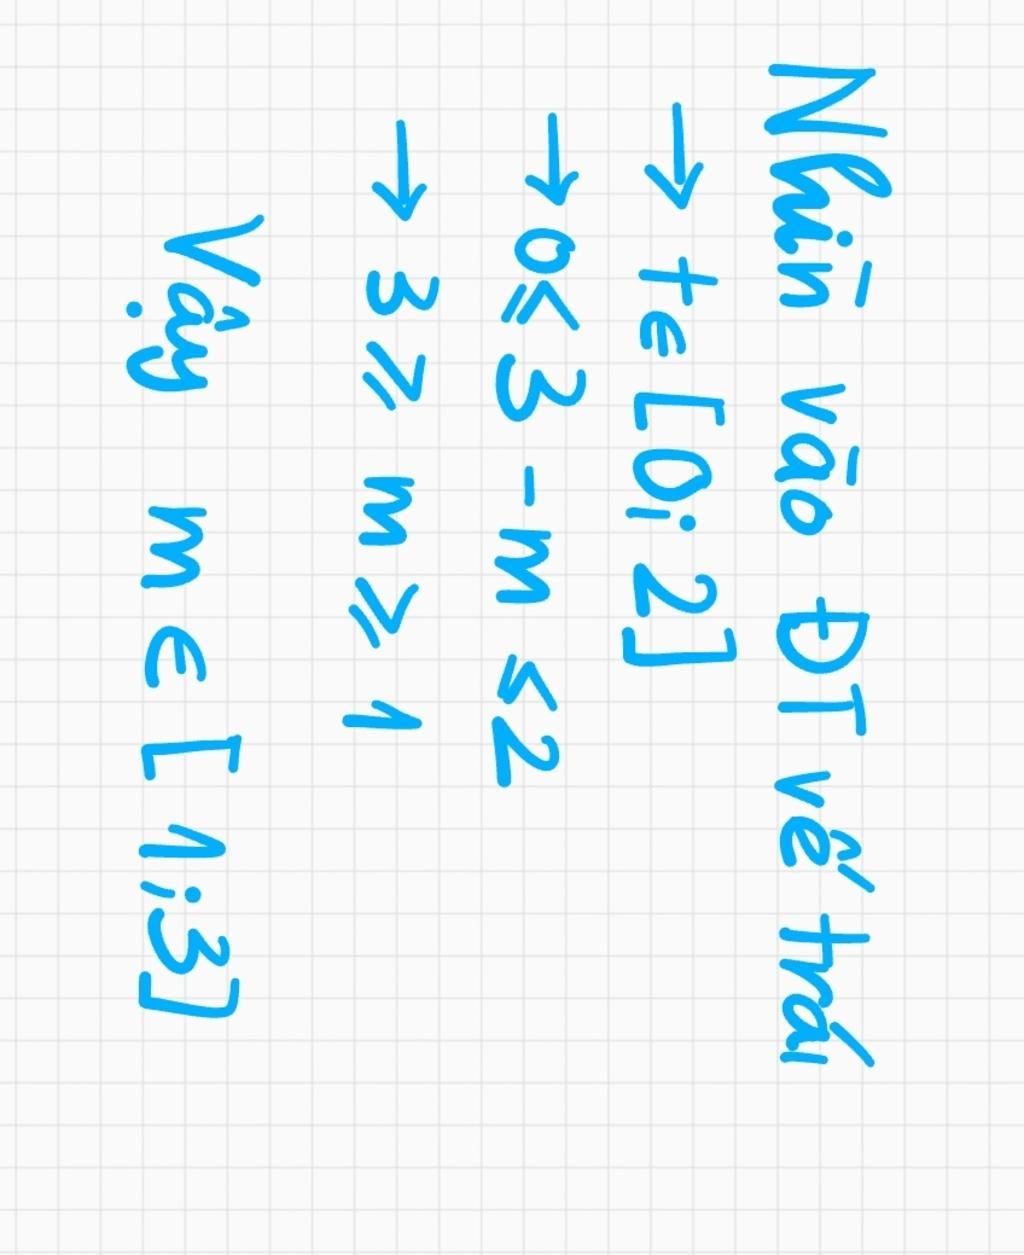 Nhìn vào ĐT vế trái
→ t ∈ [0; 2]
→ 0 ≤ 3 - m ≤ 2
→ 3 ≥ m ≥ 1
Vậy m ∈ [1; 3]